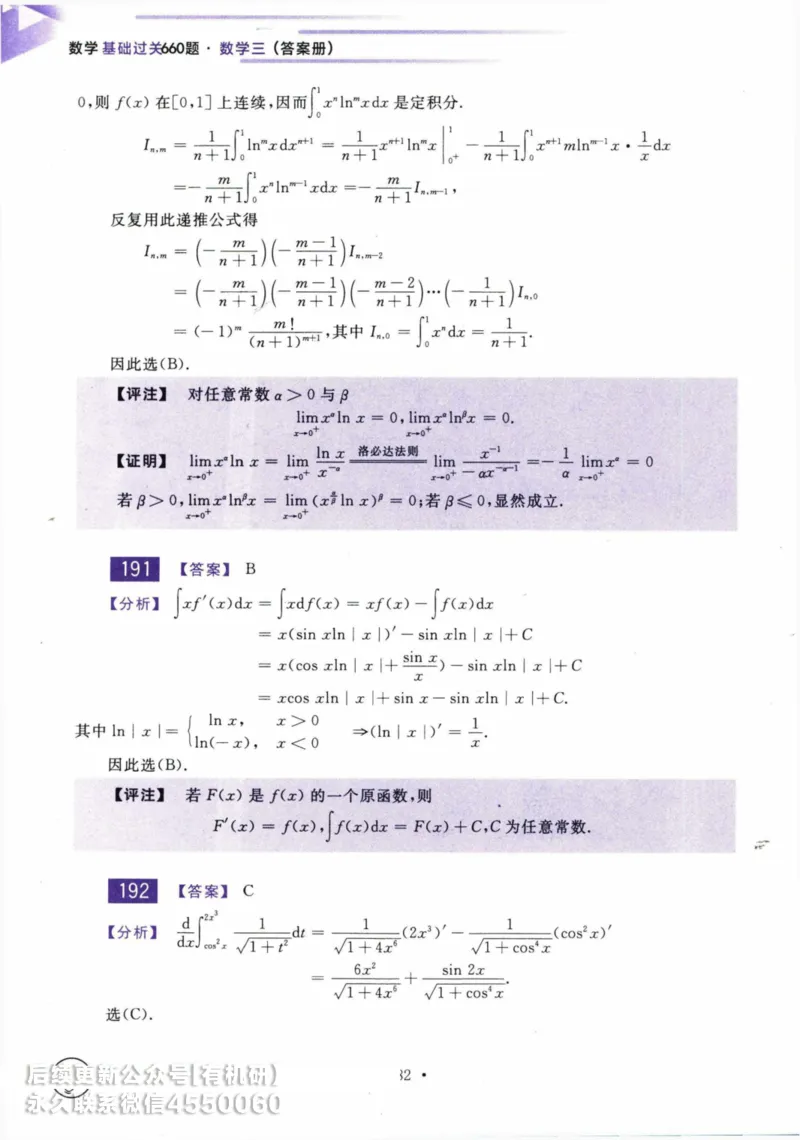 数学 基础过关660题·数学三(答案册)
0,则 f(x) 在[0,1] 上连续,因而∫₀¹ xⁿlnᵐxdx 是定积分.
I_{n,m} = \frac{1}{n+1}∫₀¹ lnᵐxdxⁿ⁺¹ = \frac{1}{n+1}xⁿ⁺¹lnᵐx|_{0⁺}^{1} − \frac{1}{n+1}∫₀¹ xⁿ⁺¹mlnᵐ⁻¹x·\frac{1}{x}dx
=−\frac{m}{n+1}∫₀¹ xⁿlnᵐ⁻¹xdx =−\frac{m}{n+1}I_{n,m−1},
反复用此递推公式得
I_{n,m} = (−\frac{m}{n+1})(−\frac{m−1}{n+1})I_{n,m−2}
= (−\frac{m}{n+1})(−\frac{m−1}{n+1})(−\frac{m−2}{n+1})…(−\frac{1}{n+1})I_{n,0}
= (−1)ᵐ \frac{m!}{(n+1)^{m+1}},其中 I_{n,0} = ∫₀¹ xⁿdx = \frac{1}{n+1}.
因此选(B).
【评注】 对任意常数 α > 0 与 β
\lim_{x→0⁺} x^α ln x = 0, \lim_{x→0⁺} x^α ln^β x = 0.
【证明】 \lim_{x→0⁺} x^α ln x = \lim_{x→0⁺} \frac{ln x}{x^{−α}} \xlongequal{洛必达法则} \lim_{x→0⁺} \frac{x^{−1}}{−αx^{−α−1}} =−\frac{1}{α} \lim_{x→0⁺} x^α = 0
若 β > 0, \lim_{x→0⁺} x^α ln^β x = \lim_{x→0⁺} (x^{\frac{α}{β}} ln x)^β = 0;若 β ⩽ 0,显然成立.
191 【答案】 B
【分析】 ∫xf′(x)dx = ∫xdf(x) = xf(x) − ∫f(x)dx
= x(sin xln | x |)′ − sin xln | x |+ C
= x(cos xln | x |+ \frac{sin x}{x}) − sin xln | x |+ C
= xcos xln | x |+ sin x − sin xln | x |+ C.
其中 ln | x |= { ln x, x > 0 ; ln(−x), x < 0 ⇒(ln | x |)′ = \frac{1}{x}.
因此选(B).
【评注】 若 F(x) 是 f(x) 的一个原函数,则
F′(x) = f(x),∫f(x)dx = F(x) + C,C 为任意常数.
192 【答案】 C
【分析】 \frac{d}{dx}∫_{cos²x}^{2x³} \frac{1}{\sqrt{1+t²}}dt = \frac{1}{\sqrt{1+4x⁶}}(2x³)′ − \frac{1}{\sqrt{1+cos⁴x}}(cos²x)′
= \frac{6x²}{\sqrt{1+4x⁶}} + \frac{sin 2x}{\sqrt{1+cos⁴x}}.
选(C).
后续更新公众号[有机研)
永久联系微信4550060
32 ·